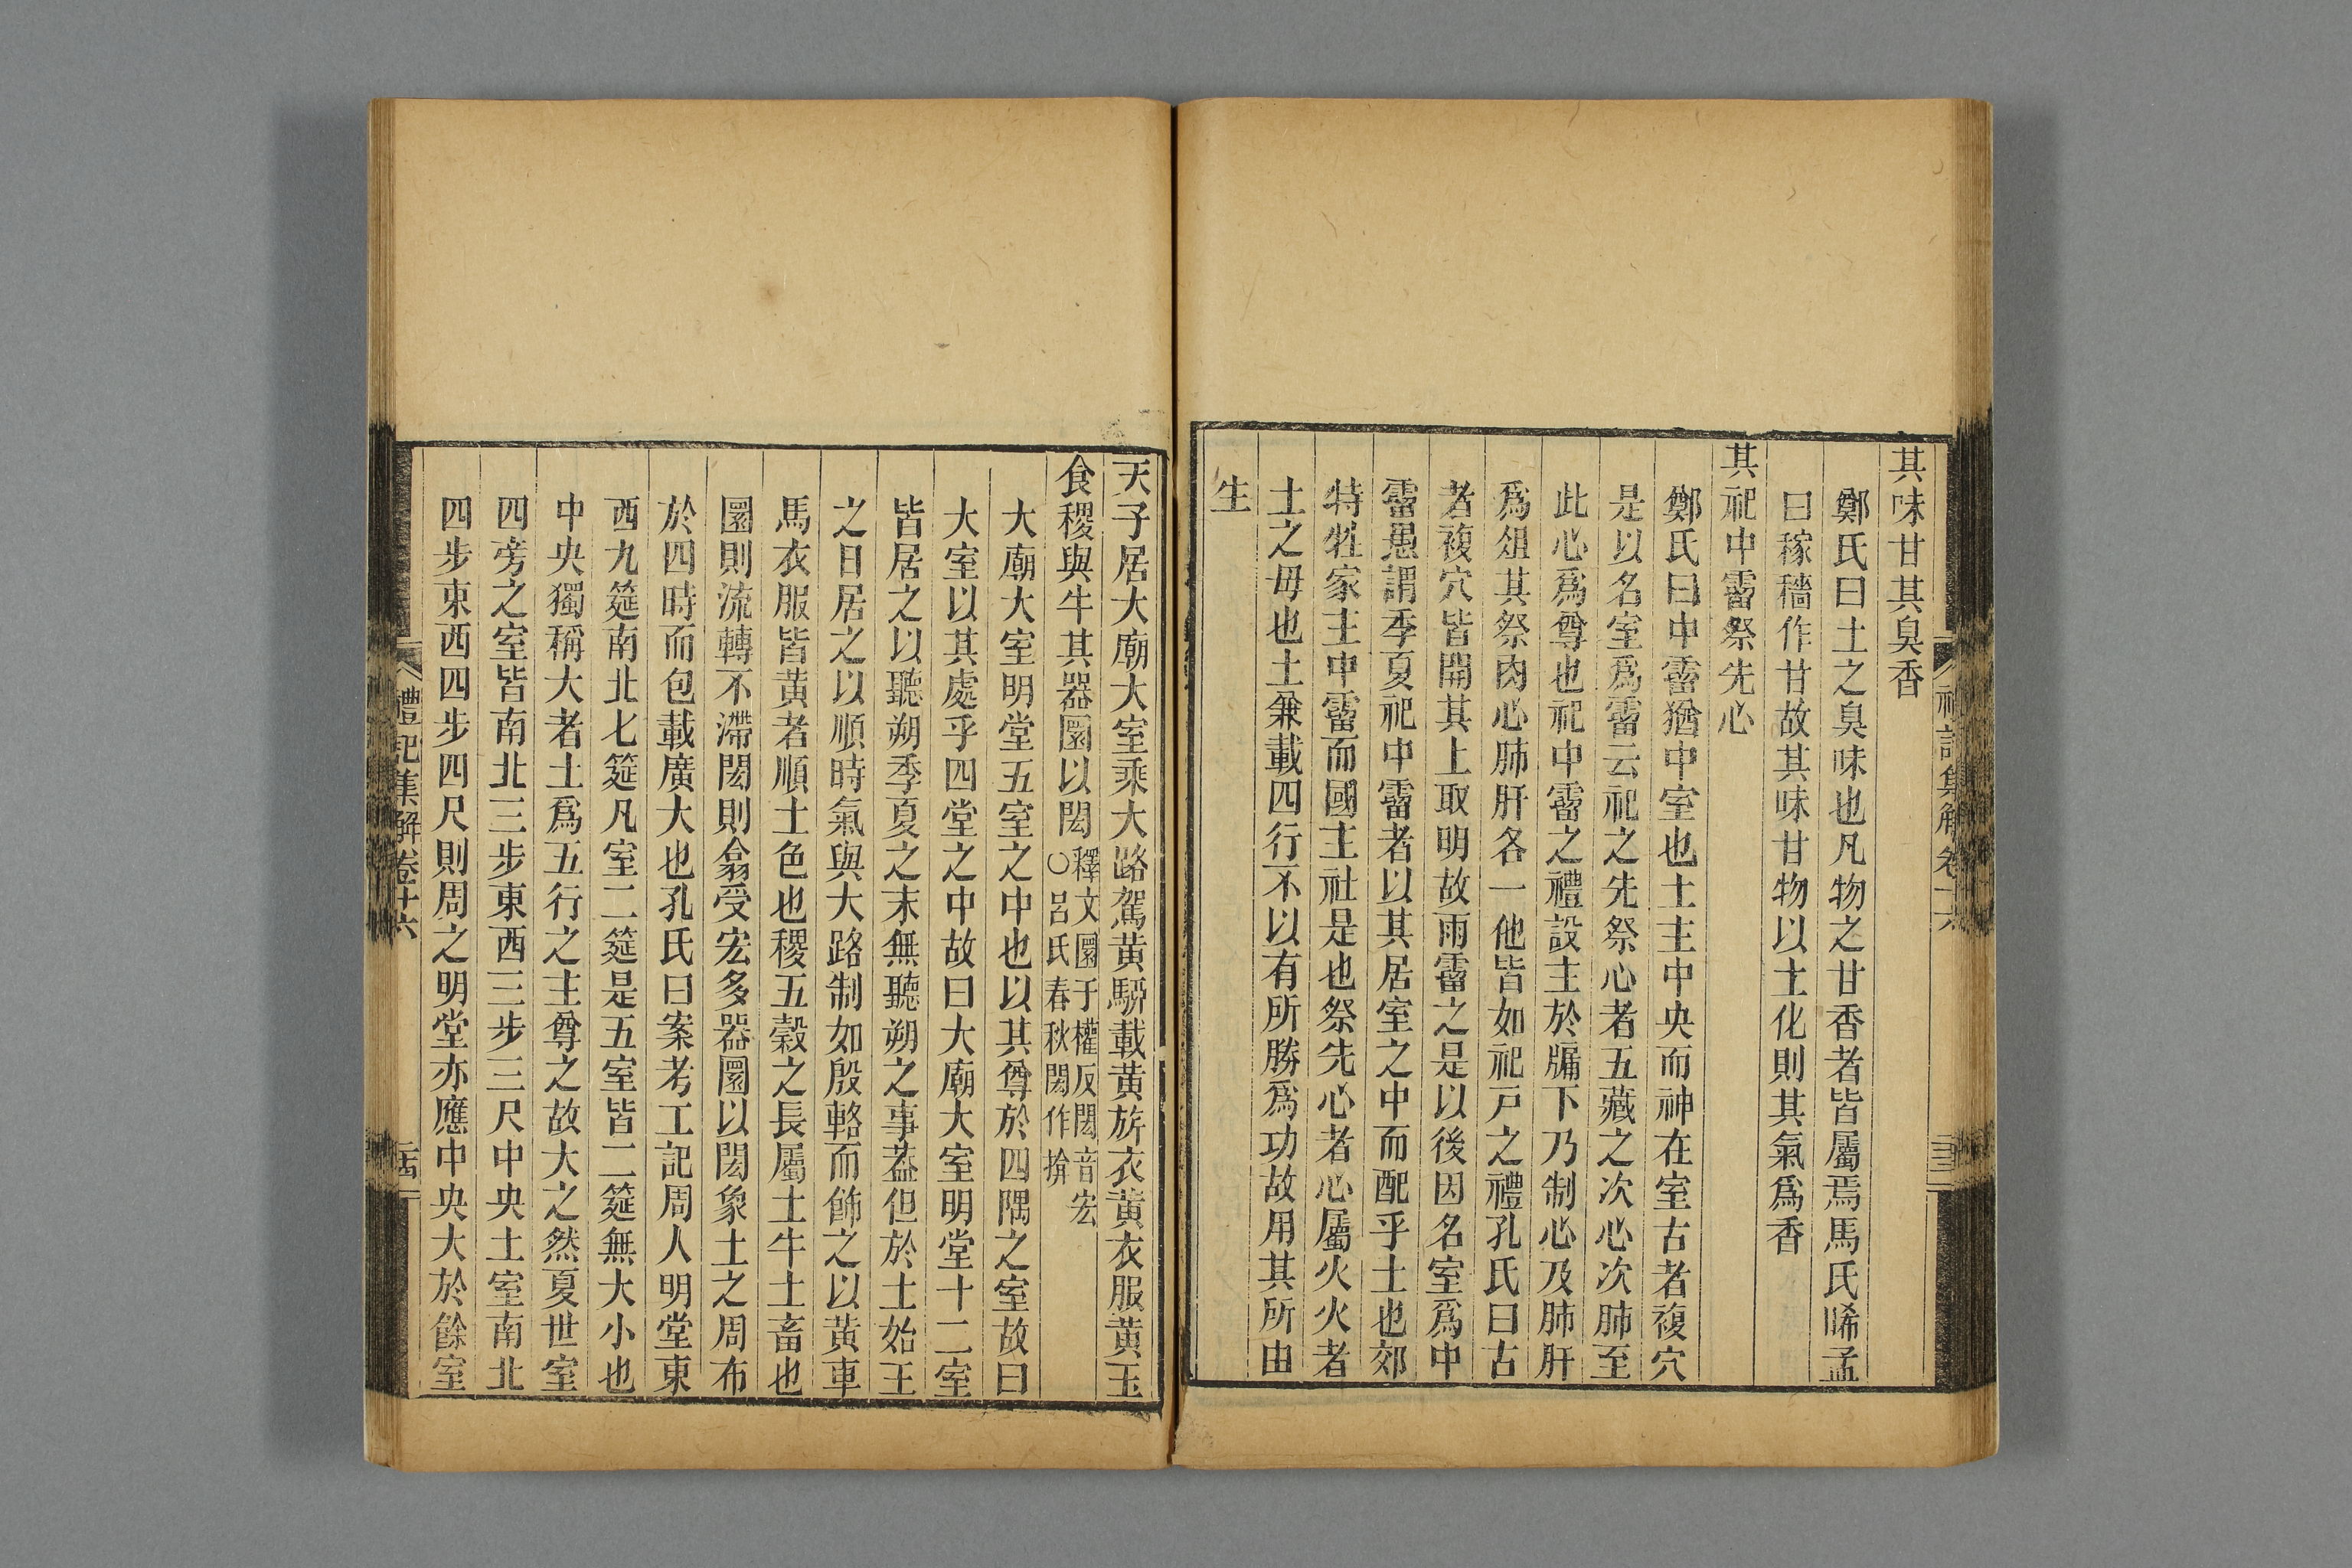 其味甘其臭香
鄭氏曰土之臭味也凡物之甘香者皆屬焉馬氏睎孟
曰稼穡作甘故其味甘物以土化則其氣爲香
其祀中霤祭先心
鄭氏曰中霤猶中室也土主中央而神在室古者複穴
是以名室爲霤云祀之先祭心者五藏之次心次肺至
此心爲尊也祀中霤之禮設主於牖下乃制心及肺肝
爲俎其祭肉心肺肝各一他皆如祀戸之禮孔氏曰古
者複穴皆開其上取明故雨霤之是以後因名室爲中
霤愚謂季夏祀中霤者以其居室之中而配乎土也郊
特牲家主中霤而國主社是也祭先心者心屬火火者
土之母也土兼載四行不以有所勝爲功故用其所由
生
天子居大廟大室乘大路駕黃駵載黃旂衣黃衣服黃玉
食稷與牛其器圜以閎釋文圜于權反閎音宏
○呂氏春秋閎作揜
大廟大室明堂五室之中也以其尊於四隅之室故曰
大室以其處乎四堂之中故曰大廟大室明堂十二室
皆居之以聽朔季夏之末無聽朔之事葢但於土始王
之日居之以順時氣與大路制如殷輅而飾之以黃車
馬衣服皆黃者順土色也稷五穀之長屬土牛土畜也
圜則流轉不滯閎則翕受宏多器圜以閎象土之周布
於四時而包載廣大也孔氏曰案考工記周人明堂東
西九筵南北七筵凡室二筵是五室皆二筵無大小也
中央獨稱大者土爲五行之主尊之故大之然夏世室
四旁之室皆南北三步東西三步三尺中央土室南北
四步東西四步四尺則周之明堂亦應中央大於餘室
禮記集解卷十六